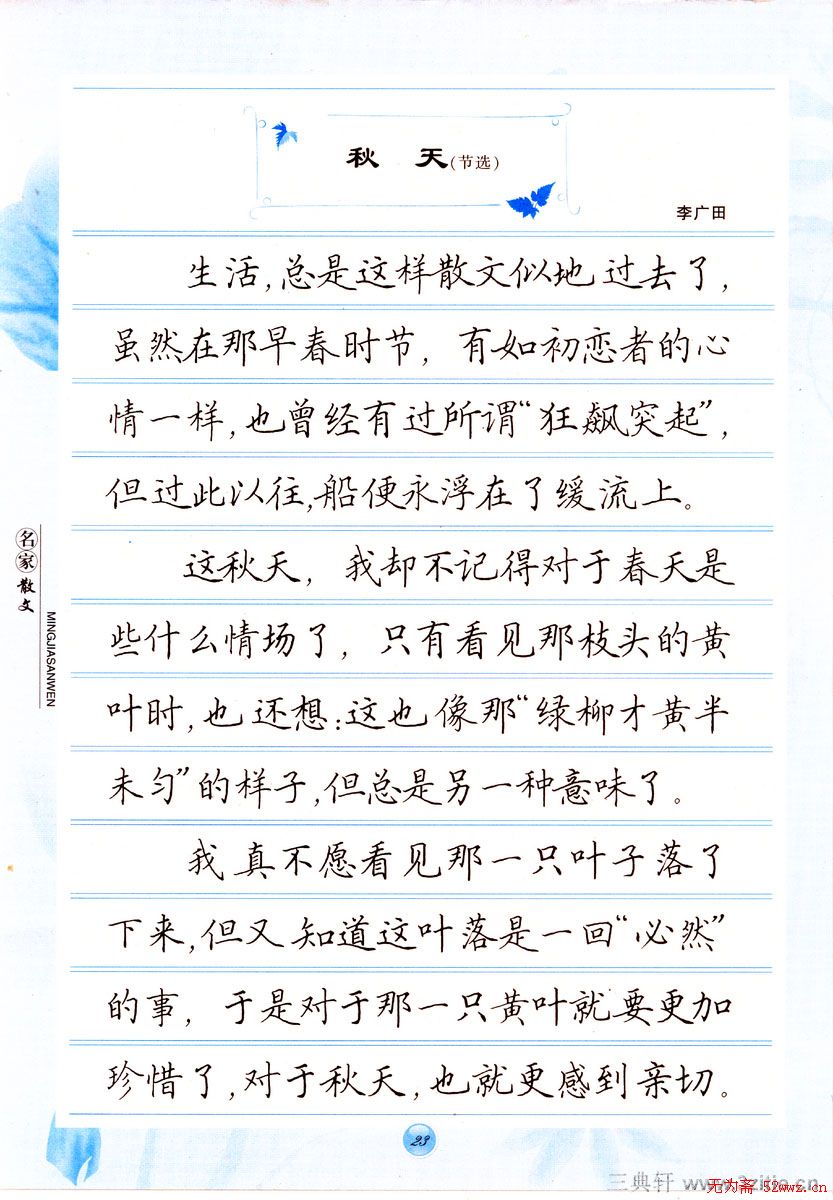 秋 天(节选)
李广田
生活,总是这样散文似地过去了,
虽然在那早春时节，有如初恋者的心
情一样,也曾经有过所谓“狂飙突起”,
但过此以往,船便永浮在了缓流上。
这秋天，我却不记得对于春天是
些什么情场了，只有看见那枝头的黄
叶时,也还想:这也像那“绿柳才黄半
未匀”的样子,但总是另一种意味了。
我真不愿看见那一只叶子落了
下来,但又知道这叶落是一回“必然”
的事，于是对于那一只黄叶就要更加
珍惜了,对于秋天,也就更感到亲切。
名家散文
MINGJIASANWEN
23
无为斋 52wwz.cn